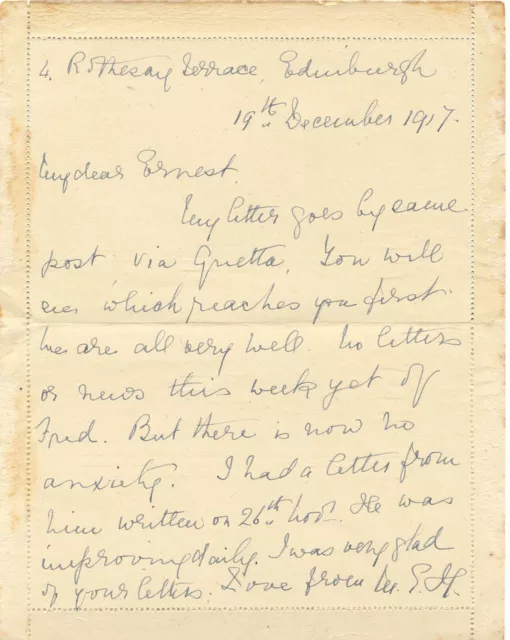 4. Rothesay Terrace, Edinburgh
19th December 1917.
My dear Ernest.
My letter goes by same
post via Gretta. You will
see which reaches you first.
We are all very well. No letters
or news this week yet of
Fred. But there is now no
anxiety. I had a letter from
him written on 26th Novr. He was
improving daily. I was very glad
of your letters. Love from M. E. H.